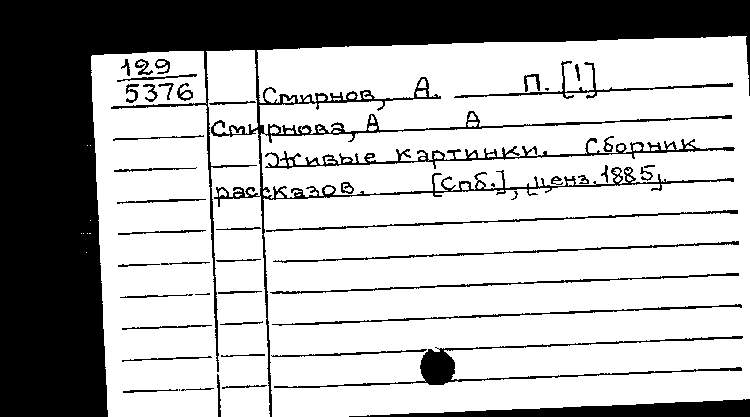 129
5376
Смирнов, А. П. [!]
Смирнова, А А
Живые картинки. Сборник
рассказов. [Спб.], ценз. 1885.